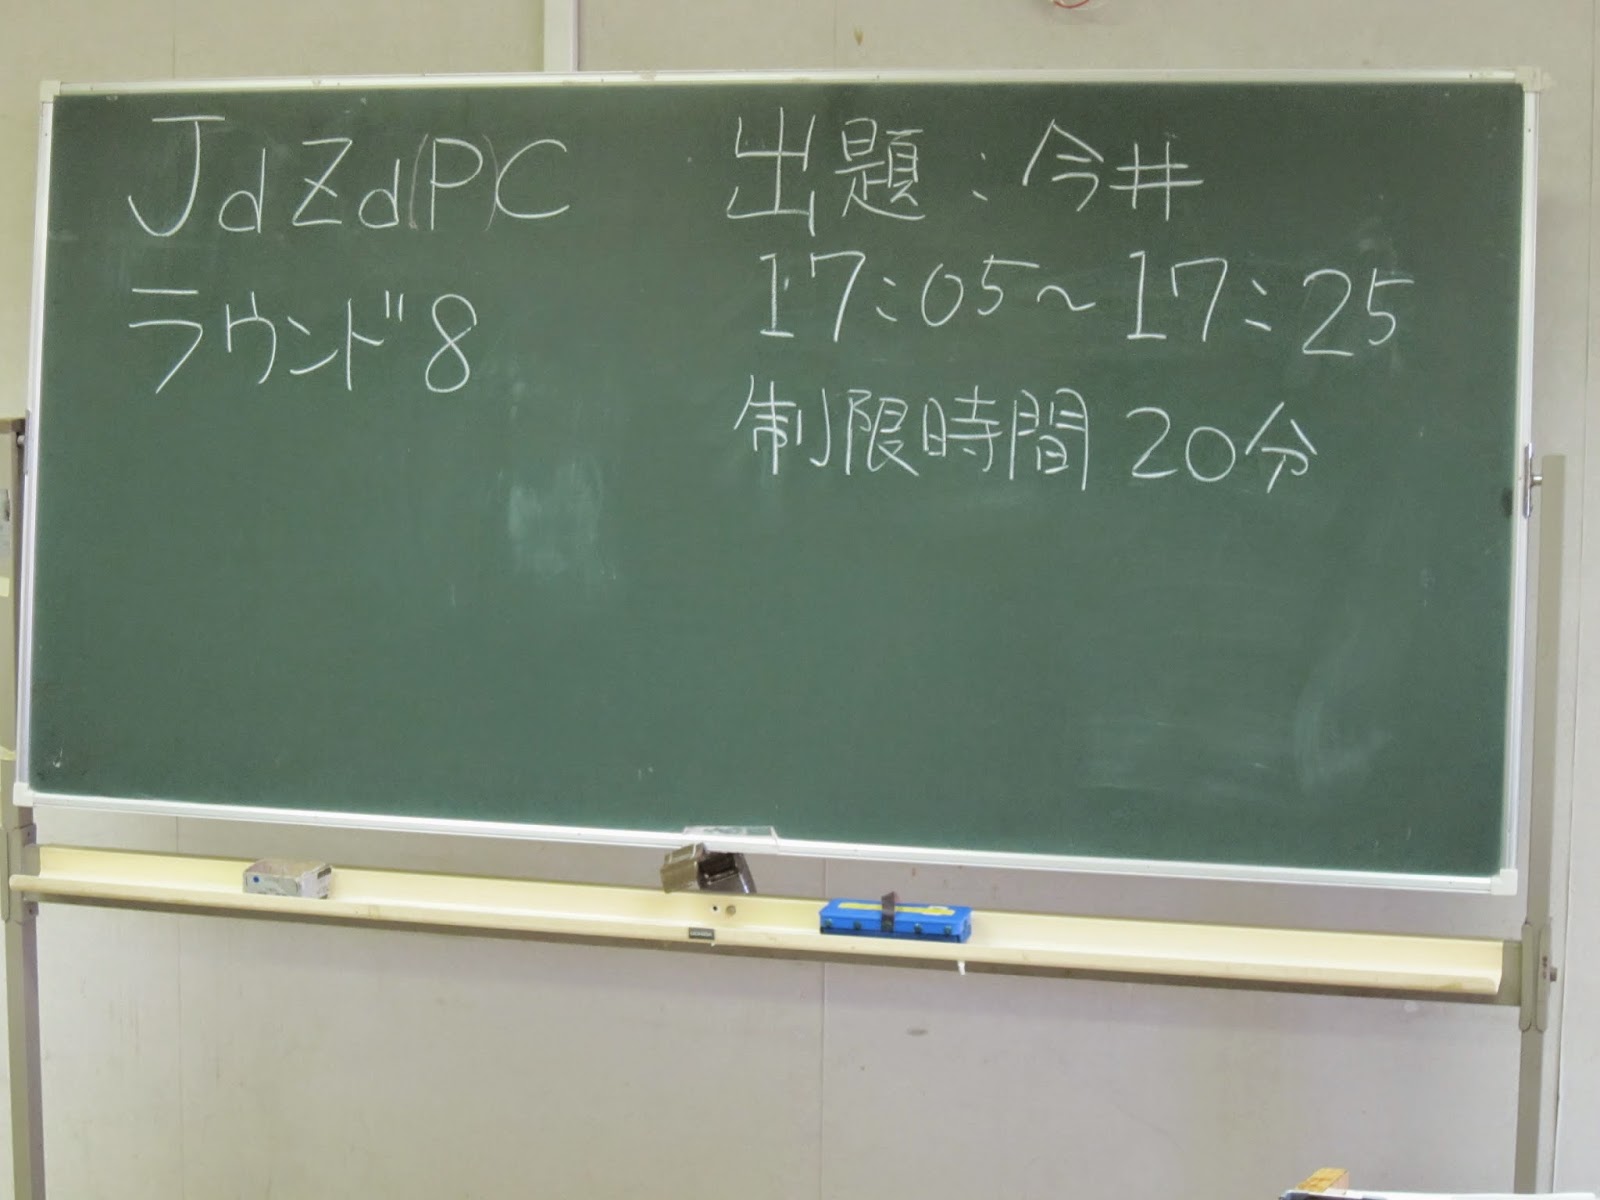 JdZd(P)C
ラウンド8
出題:今井
17:05~17:25
制限時間 20分